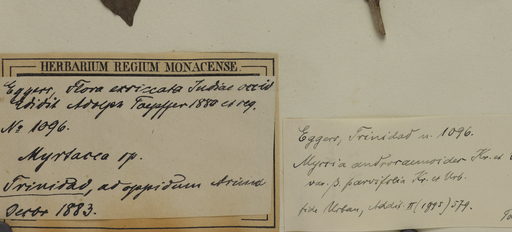 HERBARIUM REGIUM MONACENSE
Eggers, Flora exsiccata Indiae occid
Edidit Adolph Toepffer 1880 et seq.
No 1096.
Myrtacea sp.
Trinidad, ad oppidum Arima
Decbr 1883.
Eggers, Trinidad n. 1096.
Myrcia Kr. et
var. β. parvifolia Kr. et Urb.
fide Urban, Addit. II (1895) 579.